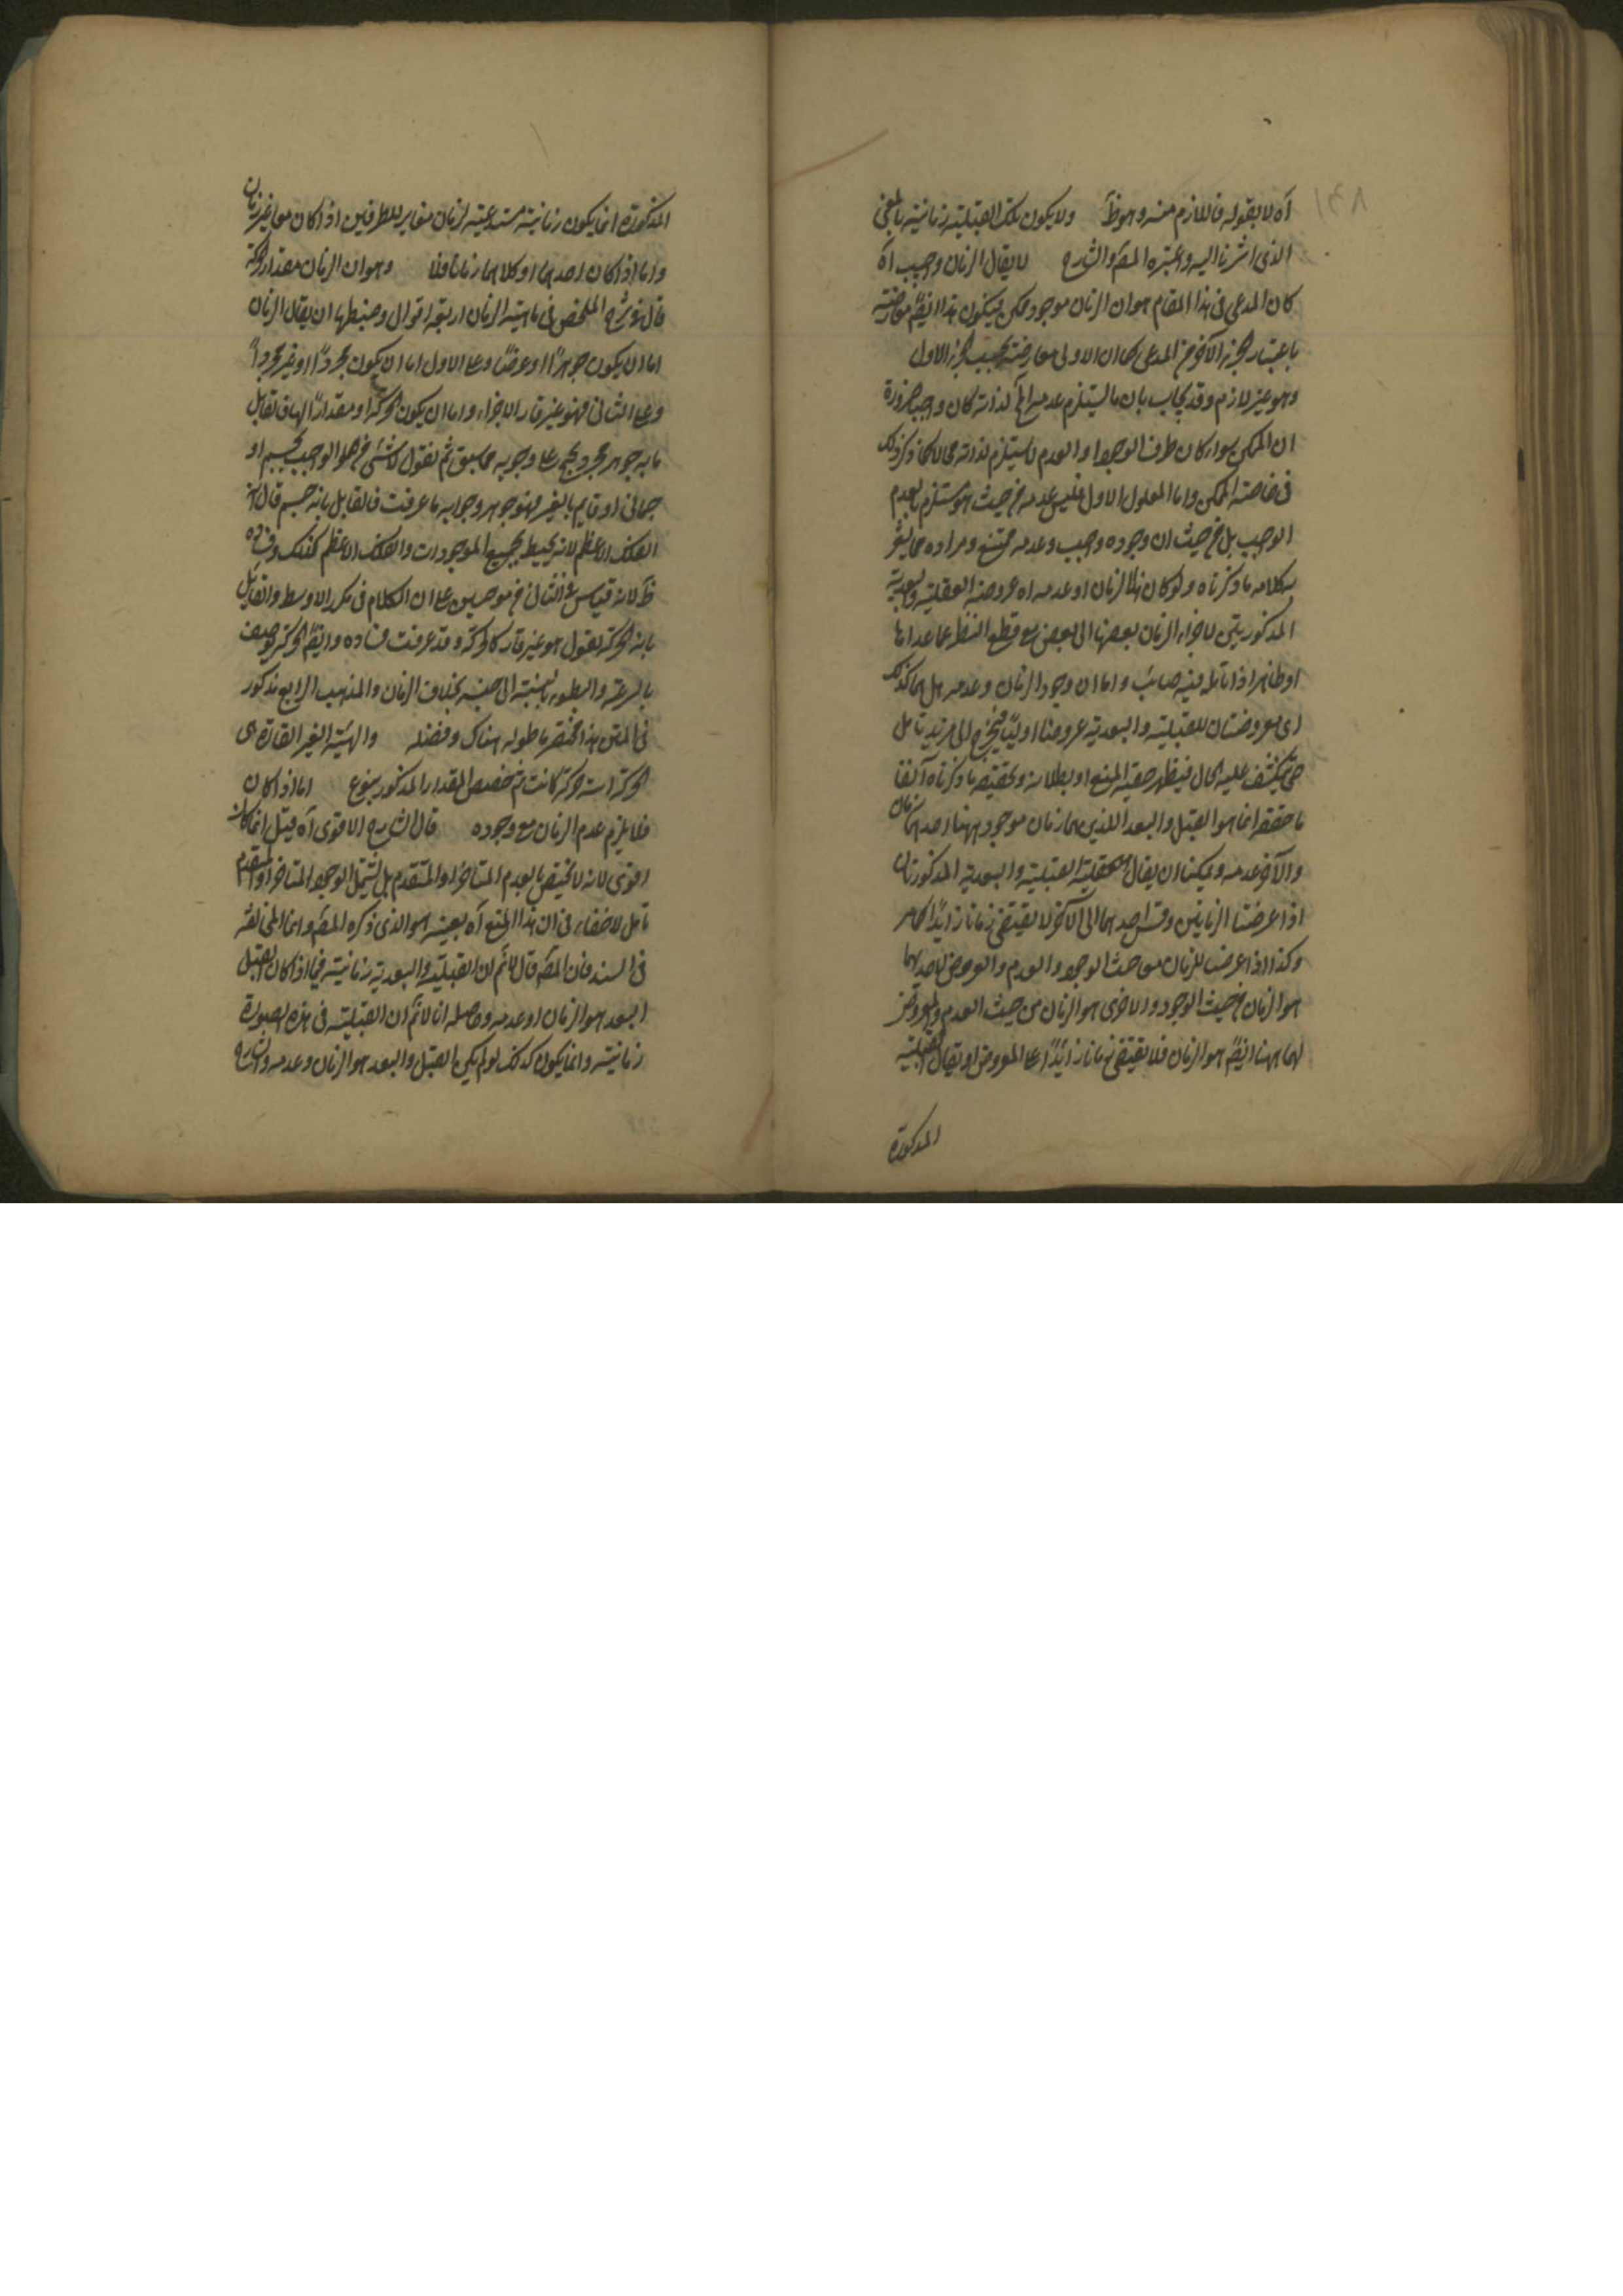 ١٣٨
آه لا بقوله فاللازم منه وهو ظ ولا يكون تلك القبلية زمانية بالمعنى
الذى اشرنا اليه واعتبره المص والشارح لا يقال الزمان واجب آه
كان المدعى فى هذا المقام هو ان الزمان موجود ممكن فيكون هذا ايض معارضة
باعتبار الجزء الآخر من المدعى كما ان الاولى معارضة بحسب الجزء الاول
وهو غير لازم وقد يجاب بان ما يستلزم عدمه المح لذاته كان واجبا ضرورة
ان الممكن سواء كان طرف الوجود او العدم لا يستلزم لذاته محالا كما ذكر ذلك
فى خاصة الممكن واما المعلول الاول فليس عدمه من حيث هو مستلزم لعدم
الواجب بل من حيث ان وجوده واجب وعدمه ممتنع ومراده مما يشعر
بكلامه ما ذكرناه ولو كان نفس الزمان او عدمه آه عروضه القبلية والبعدية
المذكورتين لاجزاء الزمان بعضها الى بعض مع قطع النظر عما عداها
او ظاهر اذا تأمله فيه صائب واما ان وجود الزمان وعدمه هل هما كذلك
اى معروضتان للقبلية والبعدية عروضا اوليا فيحتاج الى مزيد تامل
حتى ينكشف عليه الحال فيظهر حقية المنع او بطلانه وتحقيقه ما ذكرناه آنفا
ما حققه انما هو القبل والبعد اللذين هما زمان موجود ههنا احدهما زمان
والآخر عدمه ويمكننا ان يقال القبلية والبعدية المذكورتان
اذا عرضتا الزمانين وقس احدهما الى الآخر لا يقتضى زمانا زايدا كما مر
وكذا اذا عرضتا للزمان من حيث الوجود والعدم والمعروض لاحديهما
هو الزمان من حيث الوجود والاخرى هو الزمان من حيث العدم والمعروض
لهما ههنا ايض هو الزمان فلا يقتضى زمانا زايدا على المعروض او يقال القبلية
المذكورة
المذكورة انما يكون زمانية مستدعية لزمان مغاير للطرفين اذا كان معا غير زمان
واما اذا كان احدهما او كلاهما زمانا فلا وهو ان الزمان مقدار الحركة
قال فى شرح الملخص فى ماهية الزمان اربعة اقوال وضبطها ان يقال الزمان
اما ان يكون جوهرا او عرضا وعلى الاول اما ان يكون مجردا او غير مجرد
وعلى الثانى فهو غير قار الاجزاء واما ان يكون الحركة او مقدارا لها فقايل
بانه جوهر مجرد يحتج على وجوبه بما سبق ثم نقول لا شئ من هو الواجب بجسم او
جسمانى او قايم بالغير فهو جوهر وجوابه ما عرفت فالقايل بانه جسم قال انه
الفلك الاعظم لانه يحيط بجميع الموجودات والفلك الاعظم كذلك وفساده
ظ لانه قياس فى الثانى من موجبتين على ان الكلام فى تكرر الاوسط والقايل
بانه الحركة نقول هو غير قار كالحركة وقد عرفت فساده وايض الحركة توصف
بالسرعة والبطوء بالنسبة الى جنسه بخلاف الزمان والمذهب الرابع مذكور
فى المتن هذا مختصر ما طوله هناك وفصله والهيئة الغير القارة هى
الحركة اية حركة كانت ثم تخصيص المقدار المذكور بنوع اما اذا كان
فلا يلزم عدم الزمان مع وجوده قال الشارح الاقوى آه قيل انما كان
اقوى لانه لا يختص بالعدم المتاخر او المتقدم بل يشمل الوجود المتاخر او المتقدم
تامل لا خفاء فى ان هذا المنع آه بعينه هو الذى ذكره المص وانما المخالفة
فى السند فان المص قال لا نم ان القبلية والبعدية زمانية فيما اذا كان القبل
البعد هو الزمان او عدمه وحاصله انا لا نم ان القبلية فى هذه الصورة
زمانية وانما يكون كذلك لو لم يكن القبل والبعد هو الزمان وعدمه والشارح